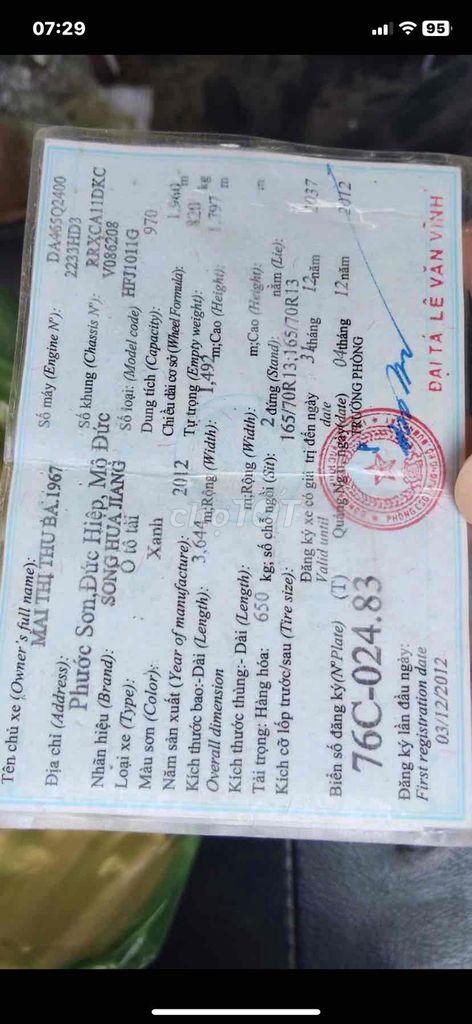 07:29
95
Tên chủ xe (Owner's full name):
MAI THỊ THU BA.1967
Địa chỉ (Address):
Phước Sơn,Đức Hiệp, Mộ Đức
Nhãn hiệu (Brand): SONG HUA JIANG
Loại xe (Type): Ô tô tải
Màu sơn (Color): Xanh
Năm sản xuất (Year of manufacture): 2012
Số máy (Engine Nº): DA465Q2400
2233HD3
Số khung (Chassis Nº): RRXCA11DKC
V086208
Số loại: (Model code) HFJ1011G
Dung tích (Capacity): 970
Chiều dài cơ sở (Wheel Formula): m
Tự trọng (Empty weight): 820 kg
Kích thước bao:-Dài (Length): m;Rộng (Width): 1,492 m;Cao (Height): 1.797 m
Overall dimension
Kích thước thùng:- Dài (Length): m;Rộng (Width): m;Cao (Height): m
Tải trọng: Hàng hóa: 650 kg; số chỗ ngồi (Sit): 2 đứng (Stand): nằm (Lie):
Kích cỡ lốp trước/sau (Tire size): 165/70R13;165/70R13
Đăng ký xe có giá trị đến ngày 31 tháng 12 năm 2037
Valid until date
Biển số đăng ký(NºPlate) (T)
76C-024.83
Quảng Ngãi, ngày(date) 04 tháng 12 năm 2012
TRƯỞNG PHÒNG
Đăng ký lần đầu ngày:
First registration date
03/12/2012
ĐẠI TÁ LÊ VĂN VĨNH
chợTỐT